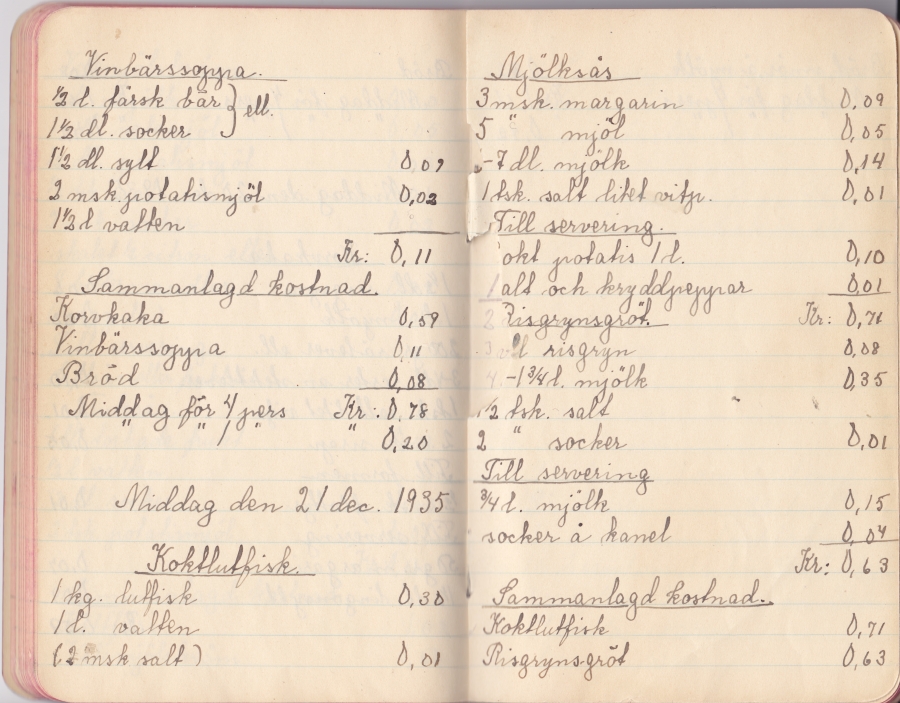 Vinbärssoppa.
1/2 l. färsk bär } ell.
1 1/2 dl. socker
1 1/2 dl. sylt 0,09
2 msk. potatismjöl 0,02
1 1/2 l vatten
Kr: 0,11
Sammanlagd kostnad.
Korvkaka 0,59
Vinbärssoppa 0,11
Bröd 0,08
Middag för 4 pers Kr: 0,78
" " 1 " " 0,20
Middag den 21 dec. 1935
Koktlutfisk.
1 kg. lutfisk 0,30
1 l. vatten
(2 msk salt) 0,01
Mjölksås
3 msk. margarin 0,09
5 " mjöl 0,05
-7 dl. mjölk 0,14
1 tsk. salt litet vitp. 0,01
Till servering.
okt potatis 1 l. 0,10
alt och kryddpeppar 0,01
Risgrynsgröt. Kr: 0,71
risgryn 0,08
-1 3/4 l. mjölk 0,35
1/2 tsk. salt
2 " socker 0,01
Till servering
3/4 l. mjölk 0,15
socker å kanel 0,04
Kr: 0,63
Sammanlagd kostnad.
Koktlutfisk 0,71
Risgrynsgröt 0,63